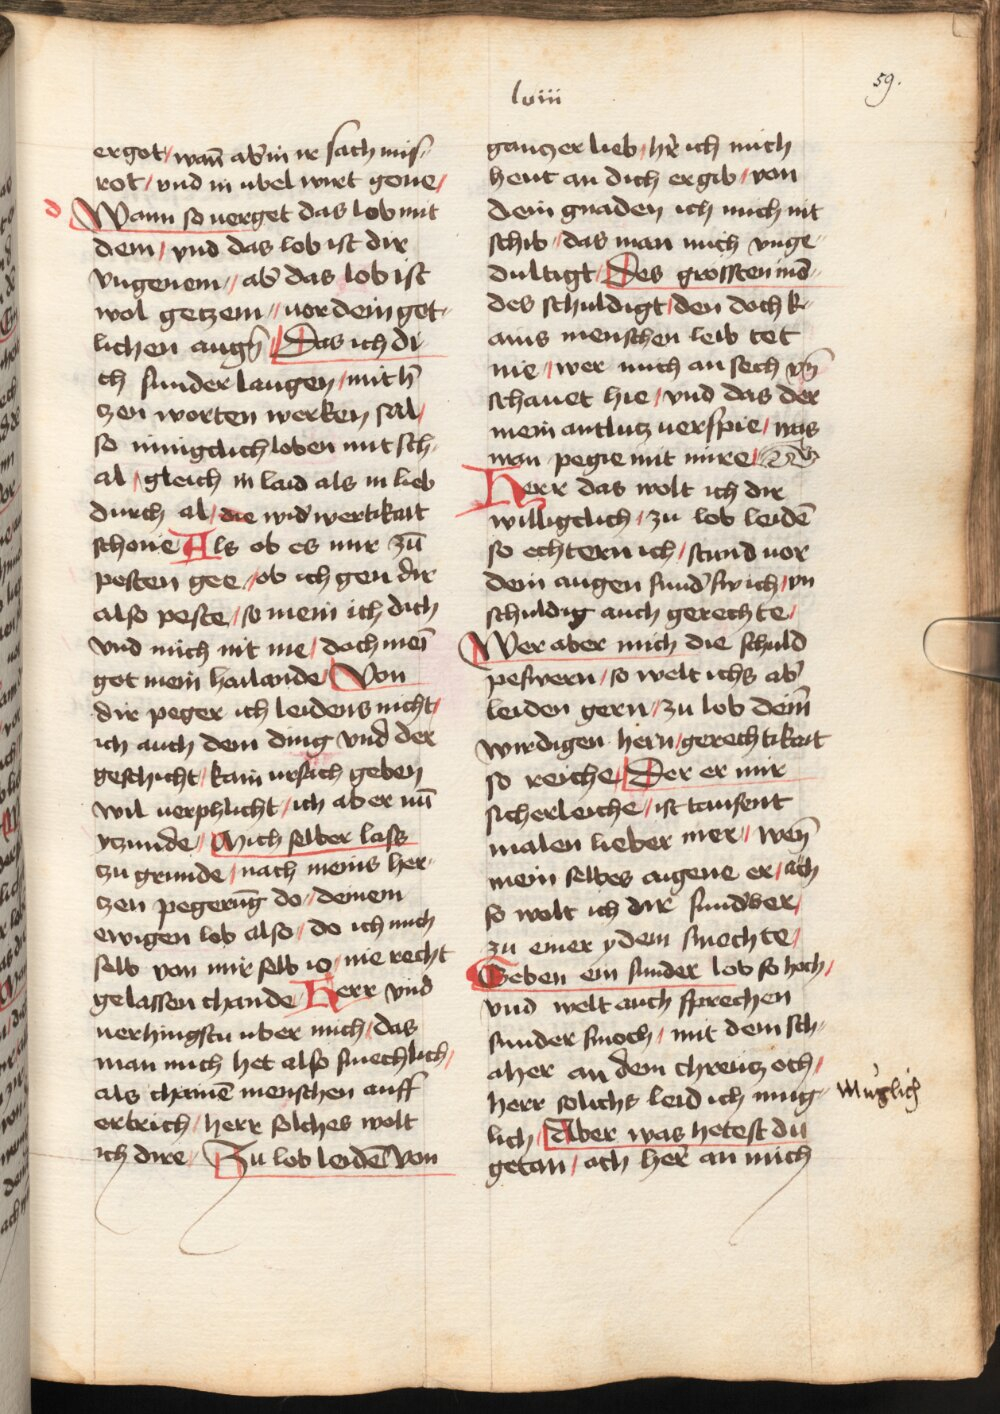 lviii
59.
ergot / wañ ab in ir sach mis-
rot / vnd in vbel wirt gone /
d Wann so verget das lob mit
dem / vnd das lob ist dir
vngenem // ab das lob ist
wol getzem // vor dein got-
lichen augñ Das ich di
ch sunder laugen / mit h
tzen worten werken sal /
so innigclich loben mit sch-
al / gleich in laid als in lieb
durch al / die widwertikait
schone Als ob es mir zū
pesten gee / ob ich gen dir
also peste / so mein ich dich
vnd mich nit me / doch meī
got mein hailande Von
dir peger ich leidens nicht /
ich auch dem ding vnd der
geschicht / kain vrsach geben
wil verphlicht / ich aber nū
yzunde // Mich selber lass
zu grunde / nach meins her-
tzen pegerūg do / deinem
ewigen lob also / do ich mich
selb von mir selb io / nie recht
gelassen chande Herr vnd
verhingstu vber mich / das
man mich het also smechlich /
als chainē menschen auff
ertrich / herr solches wolt
ich dire / Zu lob leidē von
gantzer lieb / hr ich mich
heut an dich ergib / von
dein gnaden ich mich nit
schib / das man mich vnge-
dultigt / Des grossten md-
des schuldigt / den doch k-
ains menschen leib tet
nie / wer mich an sech vñ
schauet hie / vnd das der
mein antlutz verspie / was
man pegie mit mire /
Herr das wolt ich dir
willigclich / zu lob leidē
so echtern ich / stund vor
dein augen sund swich / vn
schuldig auch gerechte /
Wer aber mich die schuld
peswern / so welt ichs ab
leiden gern // zu lob deim
wirdigen hern / gerechtikait
so reiche / Der er mir
sicherleiche / ist tausent
malen lieber mer // wen
mein selbes aigene er / ach
so wolt ich dir sundber /
zu einer ydem smechte /
Geben ein sunder lob so hoch /
vnd welt auch sprechen
sunder smoch / mit dem sch-
aher an dem chreutz och /
herr solichs leid ich mug-
lich / Aber was hetest du
getan / ach her an mich
Müglich